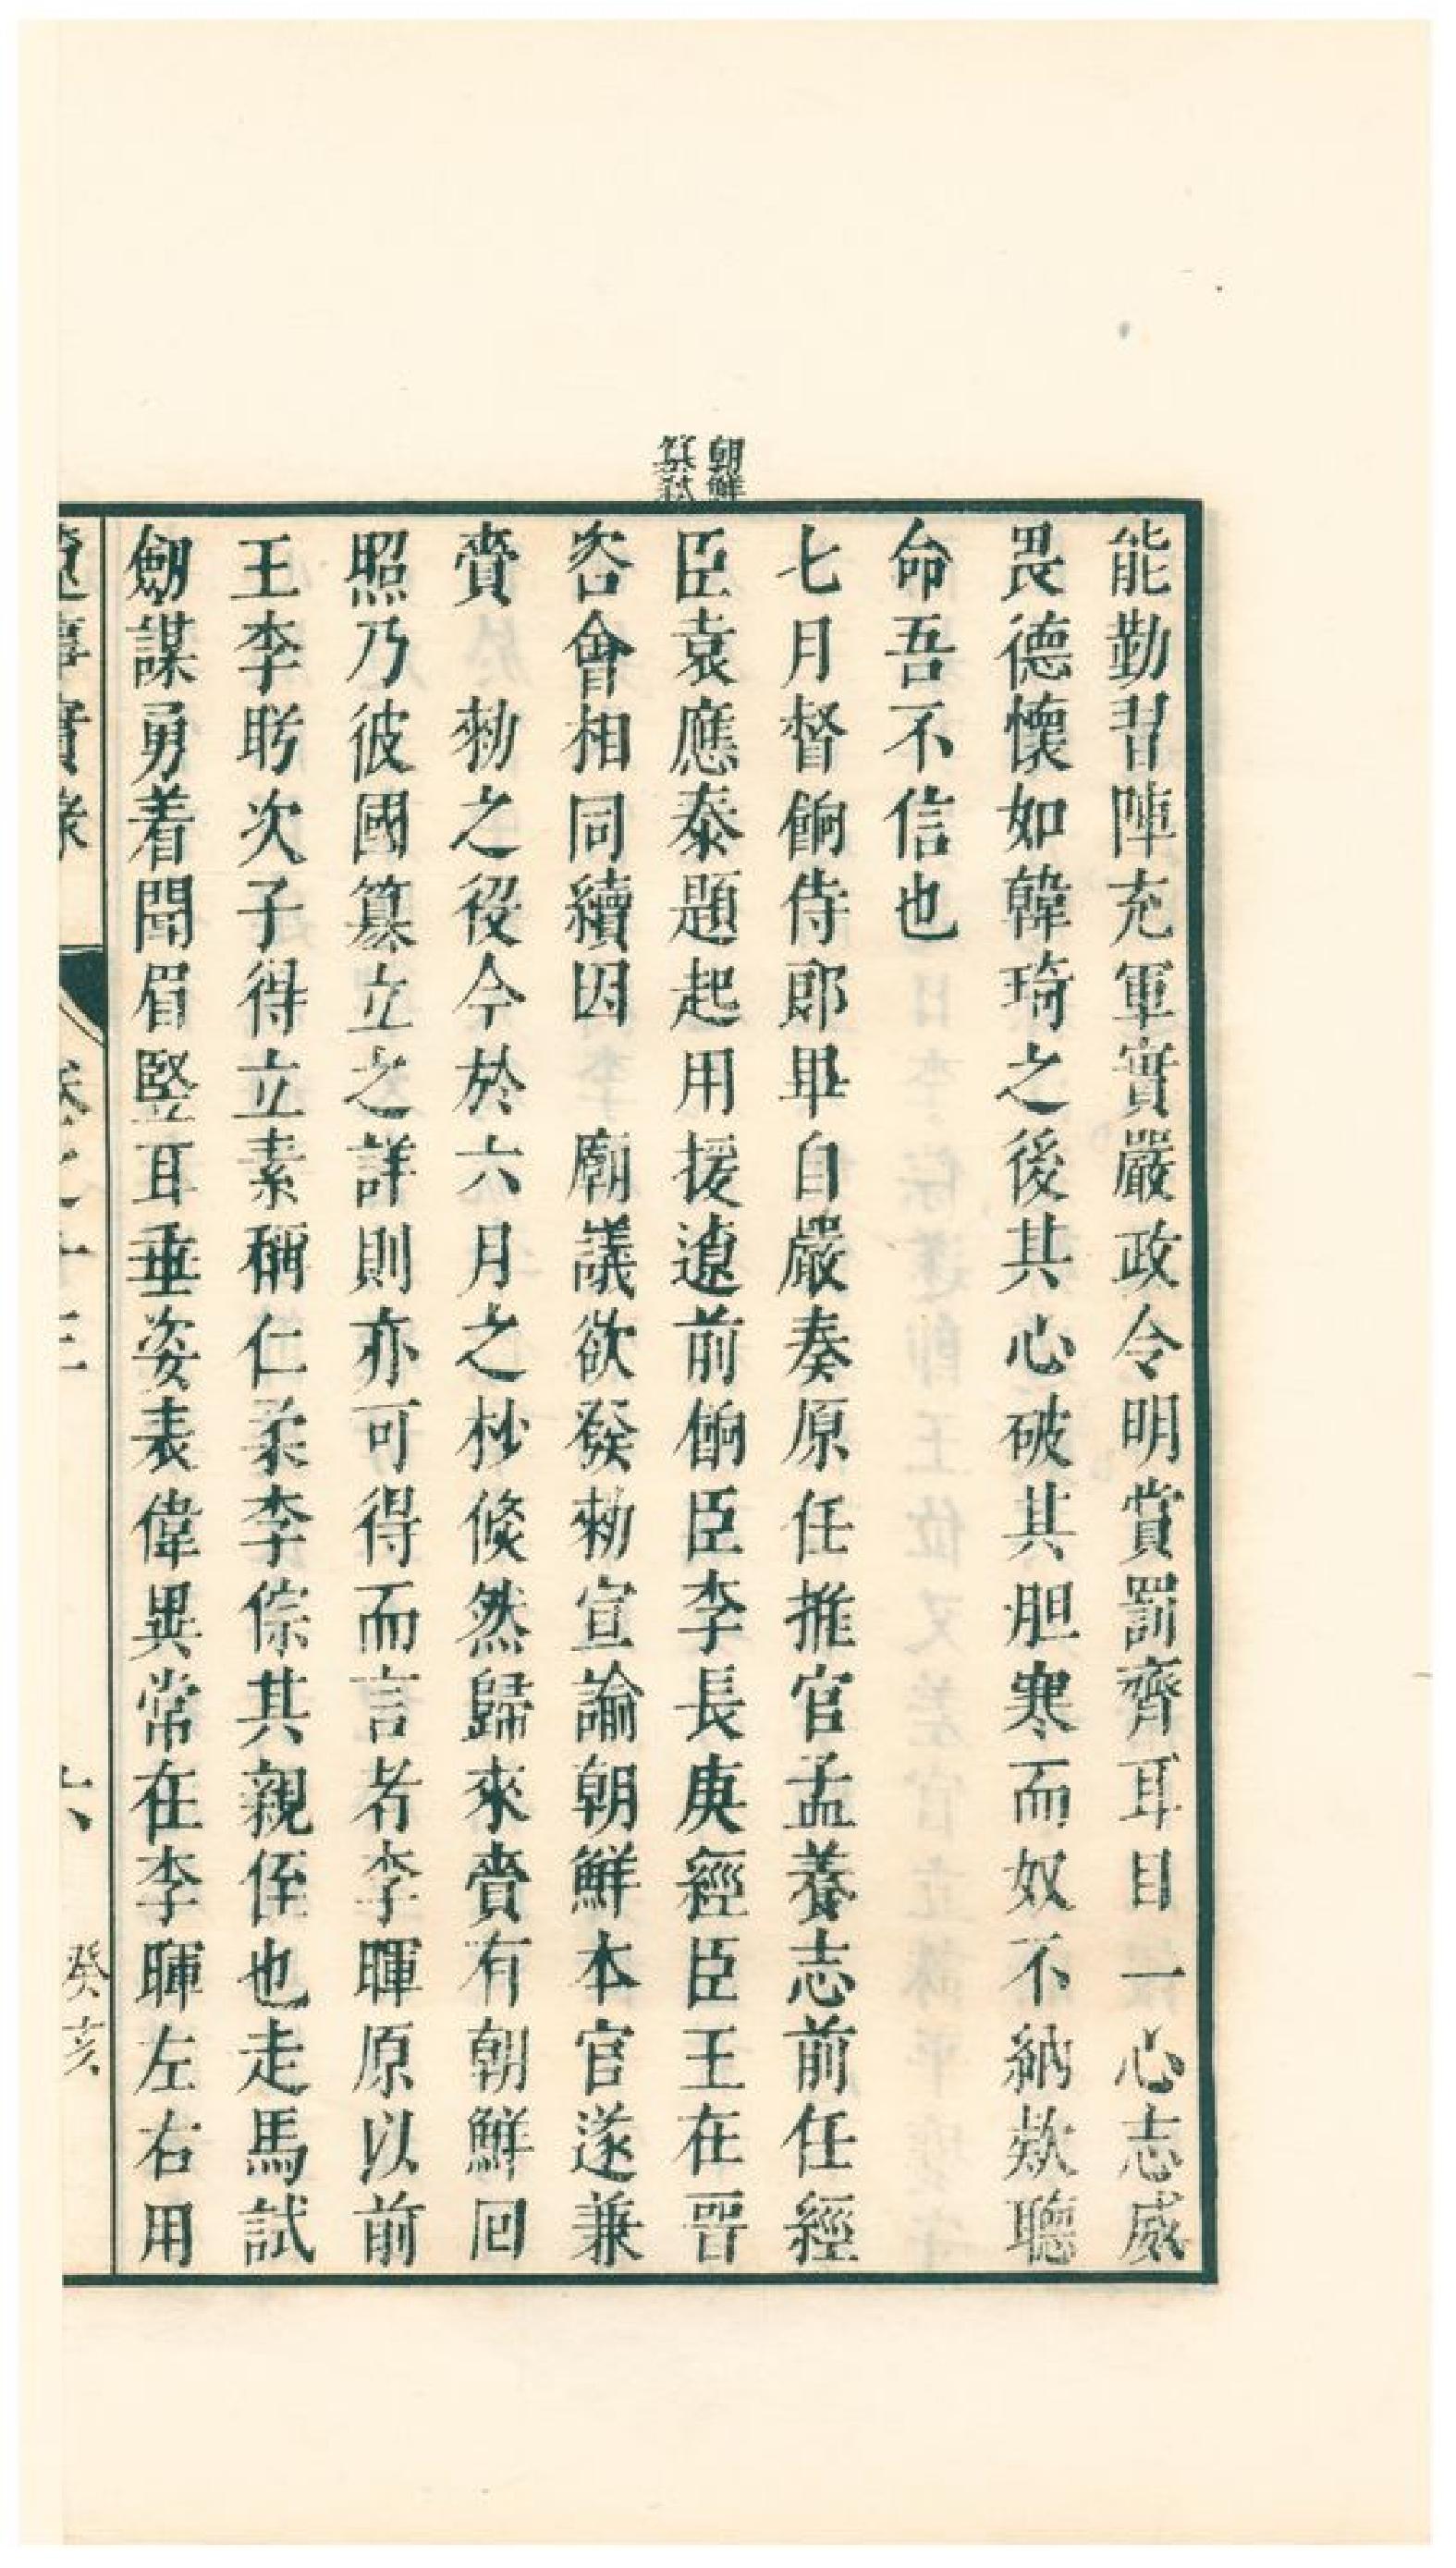 朝鮮
篡弑
能勤習陣充軍實嚴政令明賞罰齊耳目一心志威
畏德懷如韓琦之後其心破其胆寒而奴不納欵聽
命吾不信也
七月督餉侍郎畢自嚴奏原任推官孟養志前任經
臣袁應泰題起用援遼前餉臣李長庚經臣王在晉
咨會相同續因 廟議欲發勑宣諭朝鮮本官遂兼
賫 勑之役今於六月之杪倐然歸來賫有朝鮮回
照乃彼國篡立之詳則亦可得而言者李暉原以前
王李昖次子得立素稱仁柔李倧其親侄也走馬試
劒謀勇着聞眉竪耳垂姿表偉異常在李暉左右用
遼事實錄 卷之十三 六 癸亥